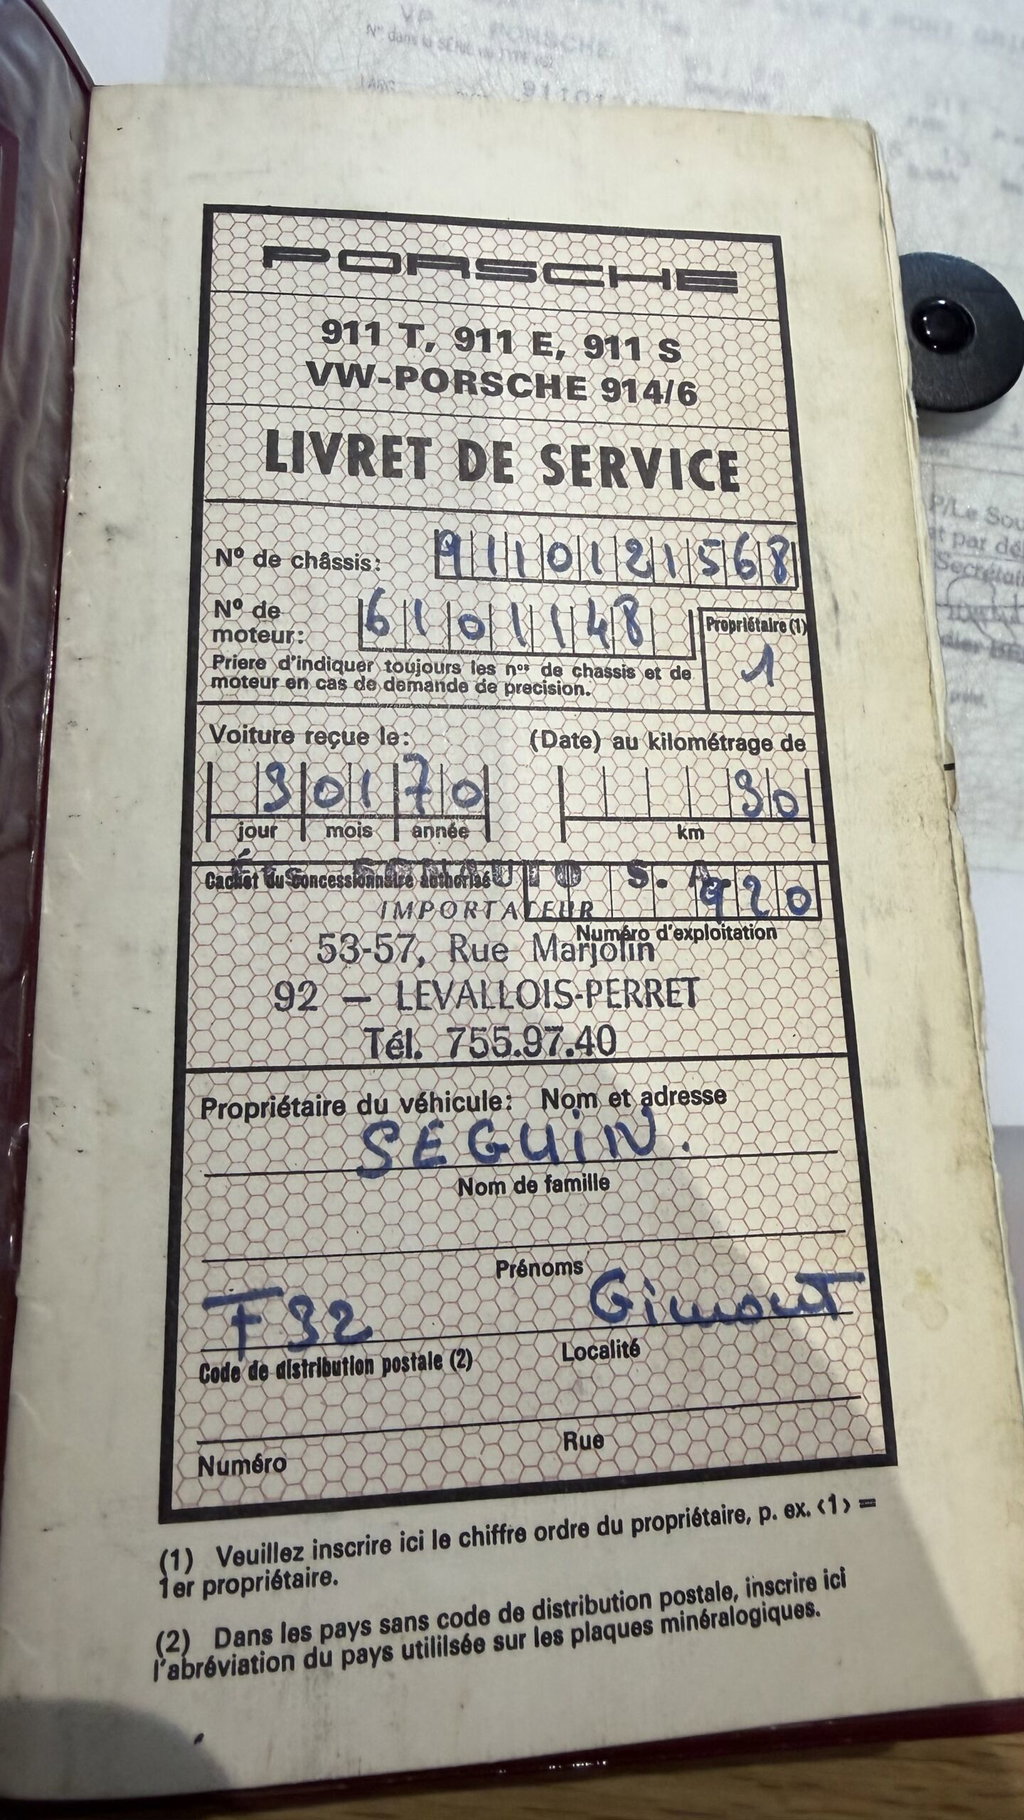 VP PORSCHE
N° dans la SÉRIE du TYPE
PORSCHE
911 T, 911 E, 911 S
VW-PORSCHE 914/6
LIVRET DE SERVICE
N° de châssis: 9110121568
N° de moteur: 6101148
Propriétaire (1) 1
Priere d'indiquer toujours les nos de chassis et de
moteur en cas de demande de precision.
Voiture reçue le: (Date) au kilométrage de
30170 30
jour mois année km
Éts SONAUTO S. A.
Cachet du concessionnaire authorisé 920
IMPORTATEUR
Numéro d'exploitation
53-57, Rue Marjolin
92 - LEVALLOIS-PERRET
Tél. 755.97.40
Propriétaire du véhicule: Nom et adresse
SEGUIN.
Nom de famille
Prénoms
F32 Gimont
Code de distribution postale (2) Localité
Numéro Rue
(1) Veuillez inscrire ici le chiffre ordre du propriétaire, p. ex. <1> =
1er propriétaire.
(2) Dans les pays sans code de distribution postale, inscrire ici
l'abréviation du pays utililsée sur les plaques minéralogiques.
P/Le Sou